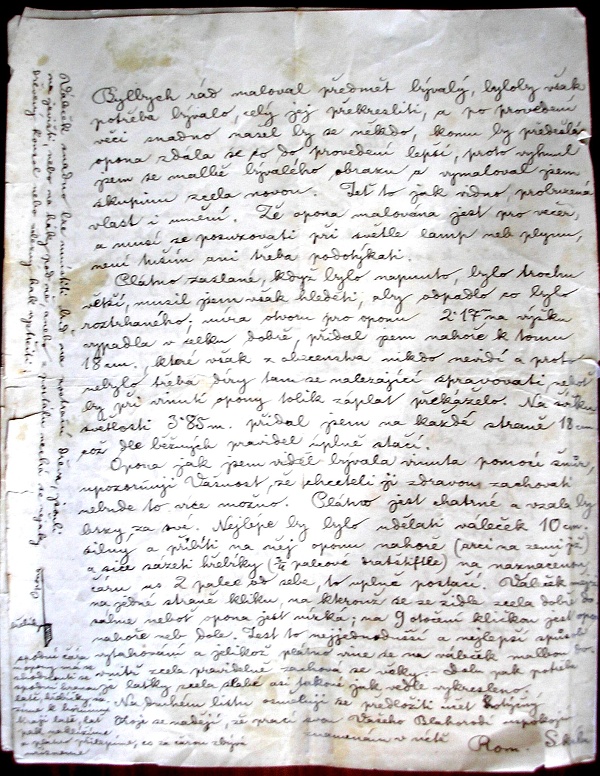 Byltbych rád maloval předmět bývalý, bylotby však
potřeba bývalo, celý jej překresliti, a po provedení
věci snadno našel by se někdo, komu by předešlá
opona zdála se co do provedení lepší, proto vyhnul
jsem se malbě bývalého obrazu a vymaloval jsem
skupinu zcela novou. Jeť to jak vidno, probuzená
vlast i umění. Že opona malována jest pro večer,
a musí se posuzovati při světle lamp neb plynu,
není tuším ani třeba podotýkati.
Plátno zaslané, když bylo napnuto, bylo trochu
větší, musil jsem však hleděti, aby odpadlo co bylo
roztrhaného; míra otvoru pro oponu 2·17 na výšku
vypadla v celku dobře, přidal jsem nahoře k tomu
18 cm., které však z obecenstva nikdo nevidí a proto
nebylo třeba díry tam se nalezající spravovati neboť
by při vinutí opony tolik záplat překáželo. Na šířku
světlosti 3·85 m. přidal jsem na každé straně 18 cm
což dle běžných pravidel úplně stačí.
Opona jak jsem viděl bývala vinuta pomocí šňůr,
upozorňuji Vážnost, že chceteli ji zdravou zachovati
nebude to více možno. Plátno jest chatrné a vzala by
brzy za své. Nejlépe by bylo udělati váleček 10 cm.
silný a přibíti na něj oponu nahoře (arci na zemi již)
a sice sázeti hřebíky (¾ palcové dratstiftle) na naznačenou
čáru us 2 palce od sebe, to úplně postačí. Váleček
na jedné straně kliku, na kterouž se ze židle zcela dobře
sáhne neboť opona jest nízká; na 9 otočení kličkou jest opona
nahoře neb dole. Jest to nejjednodušší a nejlepší spůsob
vytahování a jelikož plátno vine se na váleček malbou do
vnitř zcela pravidelně zachová se vždy. Dole pak potřeba
je laťky zcela slabé asi takové jak vedle vykresleno.
Na druhém listu osmeluji se předložiti účet
že prací svou Vašeho Blahorodí uspokojím
znamenám v úctě
Rom.
Váleček snadno lze umístiti buď na postranní dřeva, jsouli
na jevišti, nebo na háky pod ně anebo
dřevěný konsol nebo železný hák vpustiti.
spodní čára
opony má se